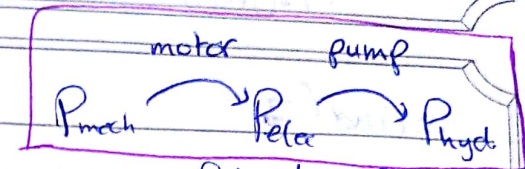 motor pump
Pmech Pelec Phyd